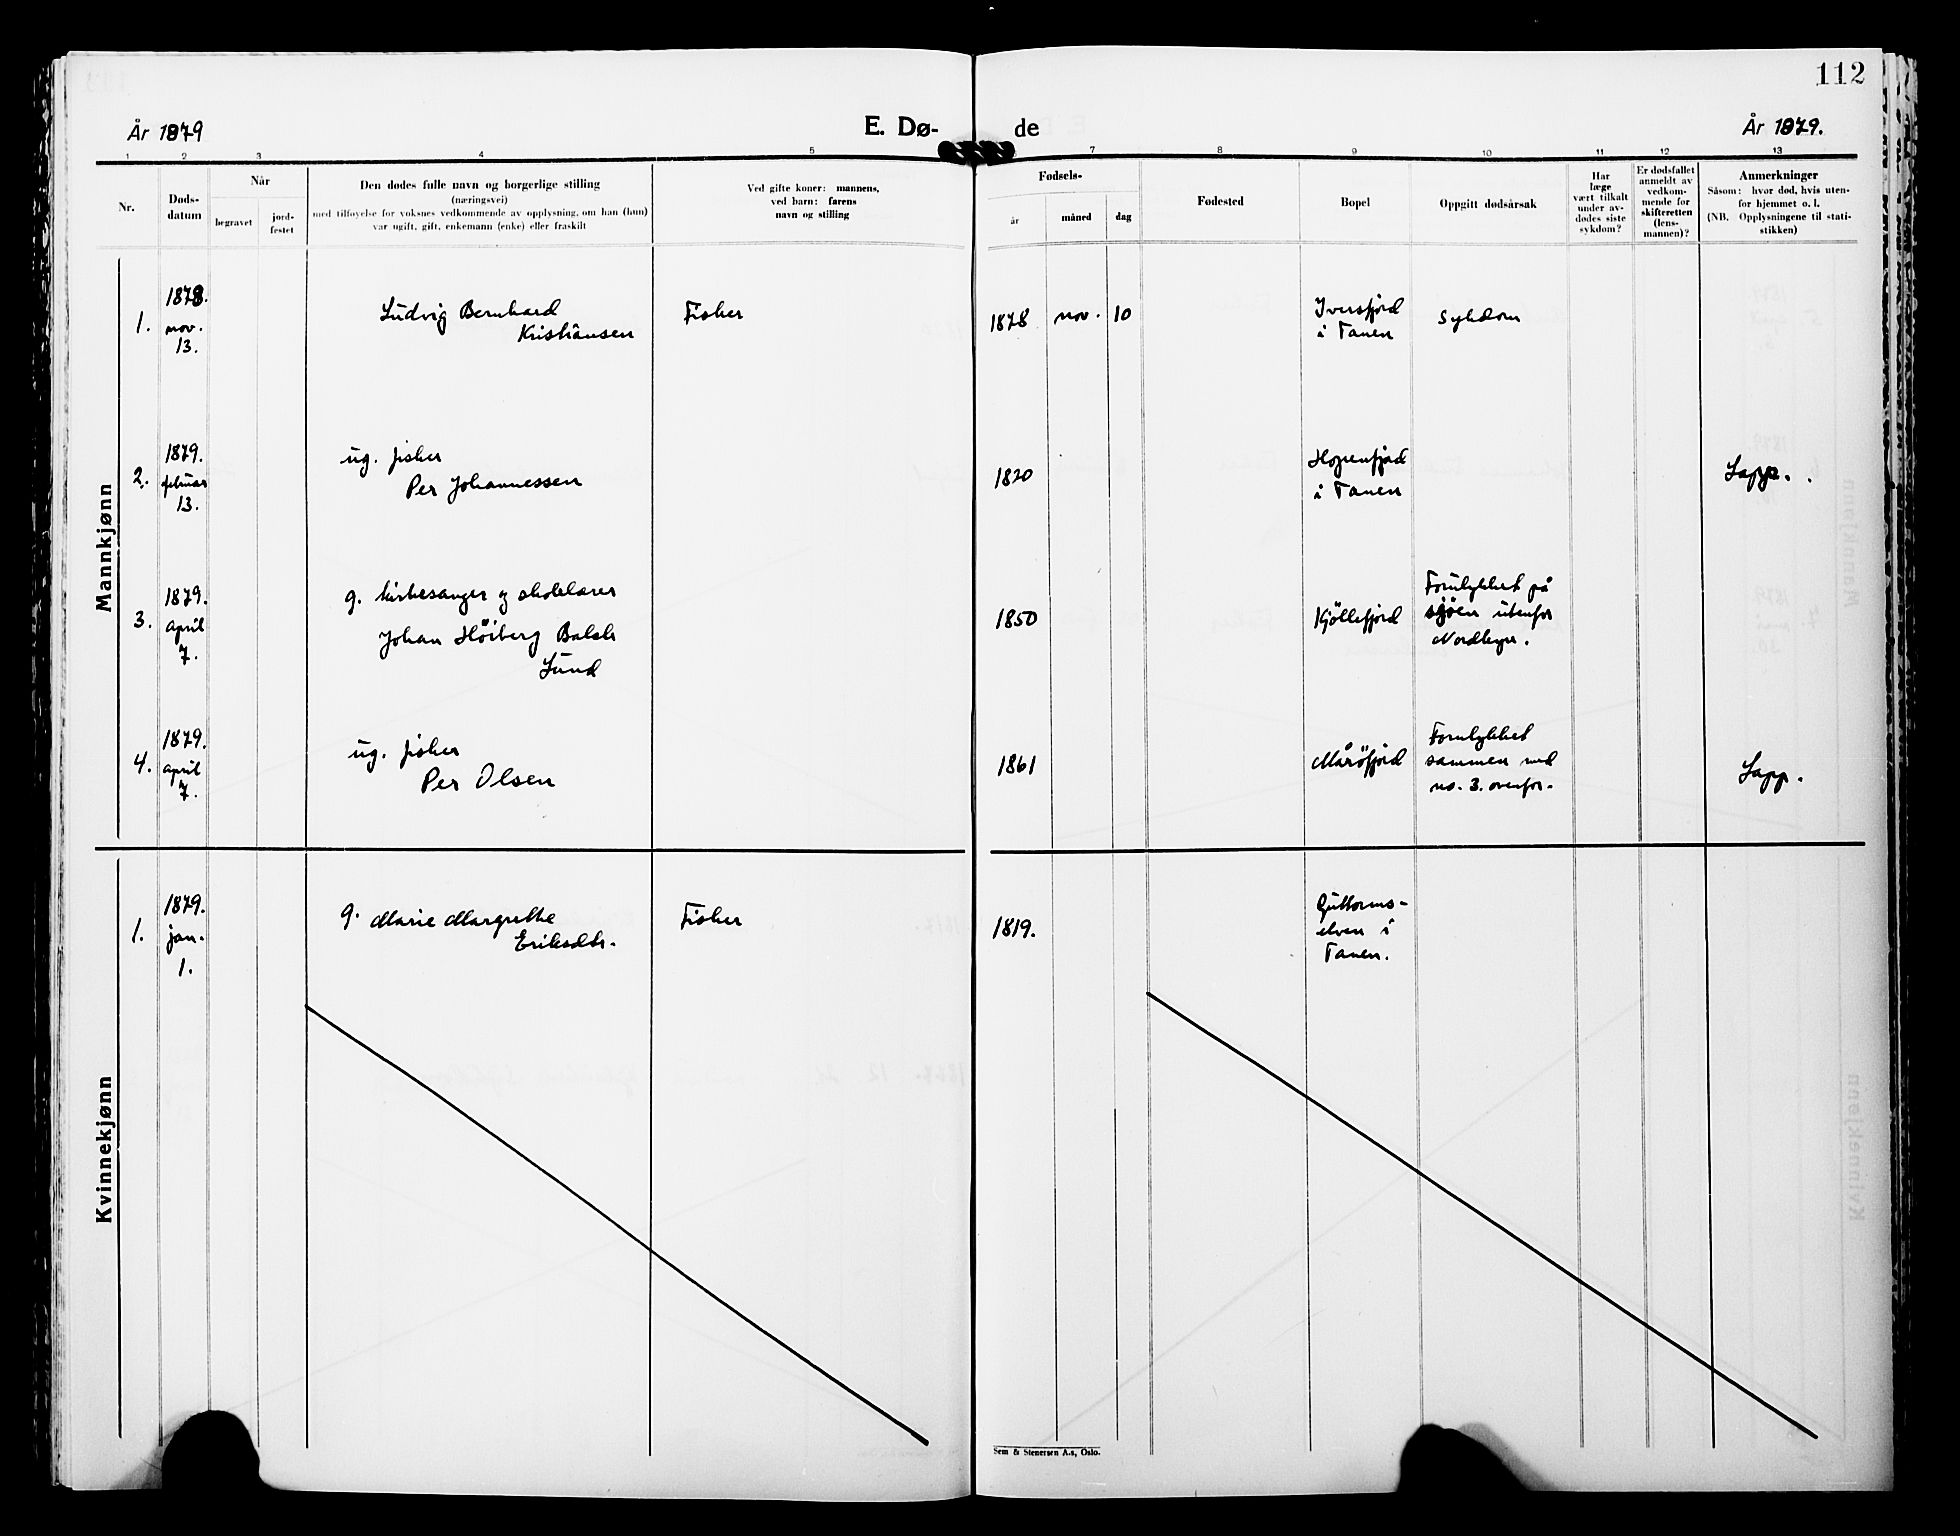 112
År 1879
E. Dø-
de
År 1879.
1 2 3 4 5 7 8 9 10 11 12 13
Nr.
Døds-
datum
Når
begravet
jord-
festet
Den dødes fulle navn og borgerlige stilling
(næringsvei)
med tilføyelse for voksnes vedkommende av opplysning, om han (hun)
var ugift, gift, enkemann (enke) eller fraskilt
Ved gifte koner: mannens,
ved barn: farens
navn og stilling
Fødsels-
år
måned
dag
Fødested
Bopel
Oppgitt dødsårsak
Har
læge
vært tilkalt
under av-
dødes siste
sykdom?
Er dødsfallet
anmeldt av
vedkom-
mende for
skifteretten
(lens-
mannen)?
Anmerkninger
Såsom: hvor død, hvis uten-
for hjemmet o. l.
(NB. Opplysningene til stati-
stikken)
Mannkjønn
1.
1878.
nov.
13.
Ludvig Bernhard
Kristiansen
Fisker
1878 nov. 10
Iversfjord
i Tanen
sykdom
2.
1879.
februar
13.
ug. fisker
Per Johannessen
1820
Hopenfjord
i Tanen
Lapp.
3.
1879.
april
7.
g. kirkesanger og skolelærer
Johan Høiberg Balch
Lund
1850
Kjöllefjord
Forulykket på
sjöen utenfor
Nordkyn.
4.
1879.
april
7.
ug. fisker
Per Olsen
1861
Måröfjord
Forulykket
sammen med
no. 3. ovenfor.
Lapp.
Kvinnekjønn
1.
1879.
jan.
1.
g. Marie Margrethe
Eriksdtr.
Fisker
1819.
Guttorms-
elven i
Tanen.
Sem & Stenersen A.s, Oslo.